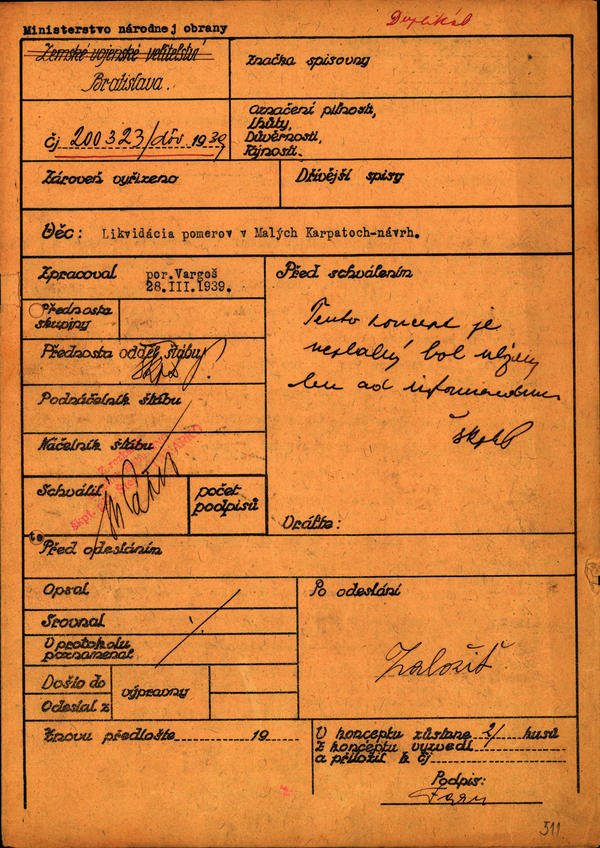 Duplikát
Ministerstvo národnej obrany
Zemské vojenské velitelství
Bratislava.
Značka spisovny
čj 200323/dôv. 1939
Označení pilnosti,
Lhůty,
Důvěrnosti,
Tajnosti.
Zároveň vyřízeno
Dřívější spisy
Věc: Likvidácia pomerov v Malých Karpatoch-návrh.
Zpracoval por.Vargoš
28.III.1939.
Před schválením
Přednosta
skupiny
Tento koncept je
neplatný bol
len ad informandum
Přednosta odděl. štábu
Podnáčelník štábu
Náčelník štábu
Schválil
počet
podpisů
Vraťte:
to
Před odesláním
Opsal
Srovnal
V protokolu
poznamenal
Došlo do
Odeslal z
výpravny
Po odeslání
Založiť
Znovu předložte 19
V konceptu zůstane 2/ kusů
Z konceptu vyzvedl
a přiložil k čj
Podpis:
511